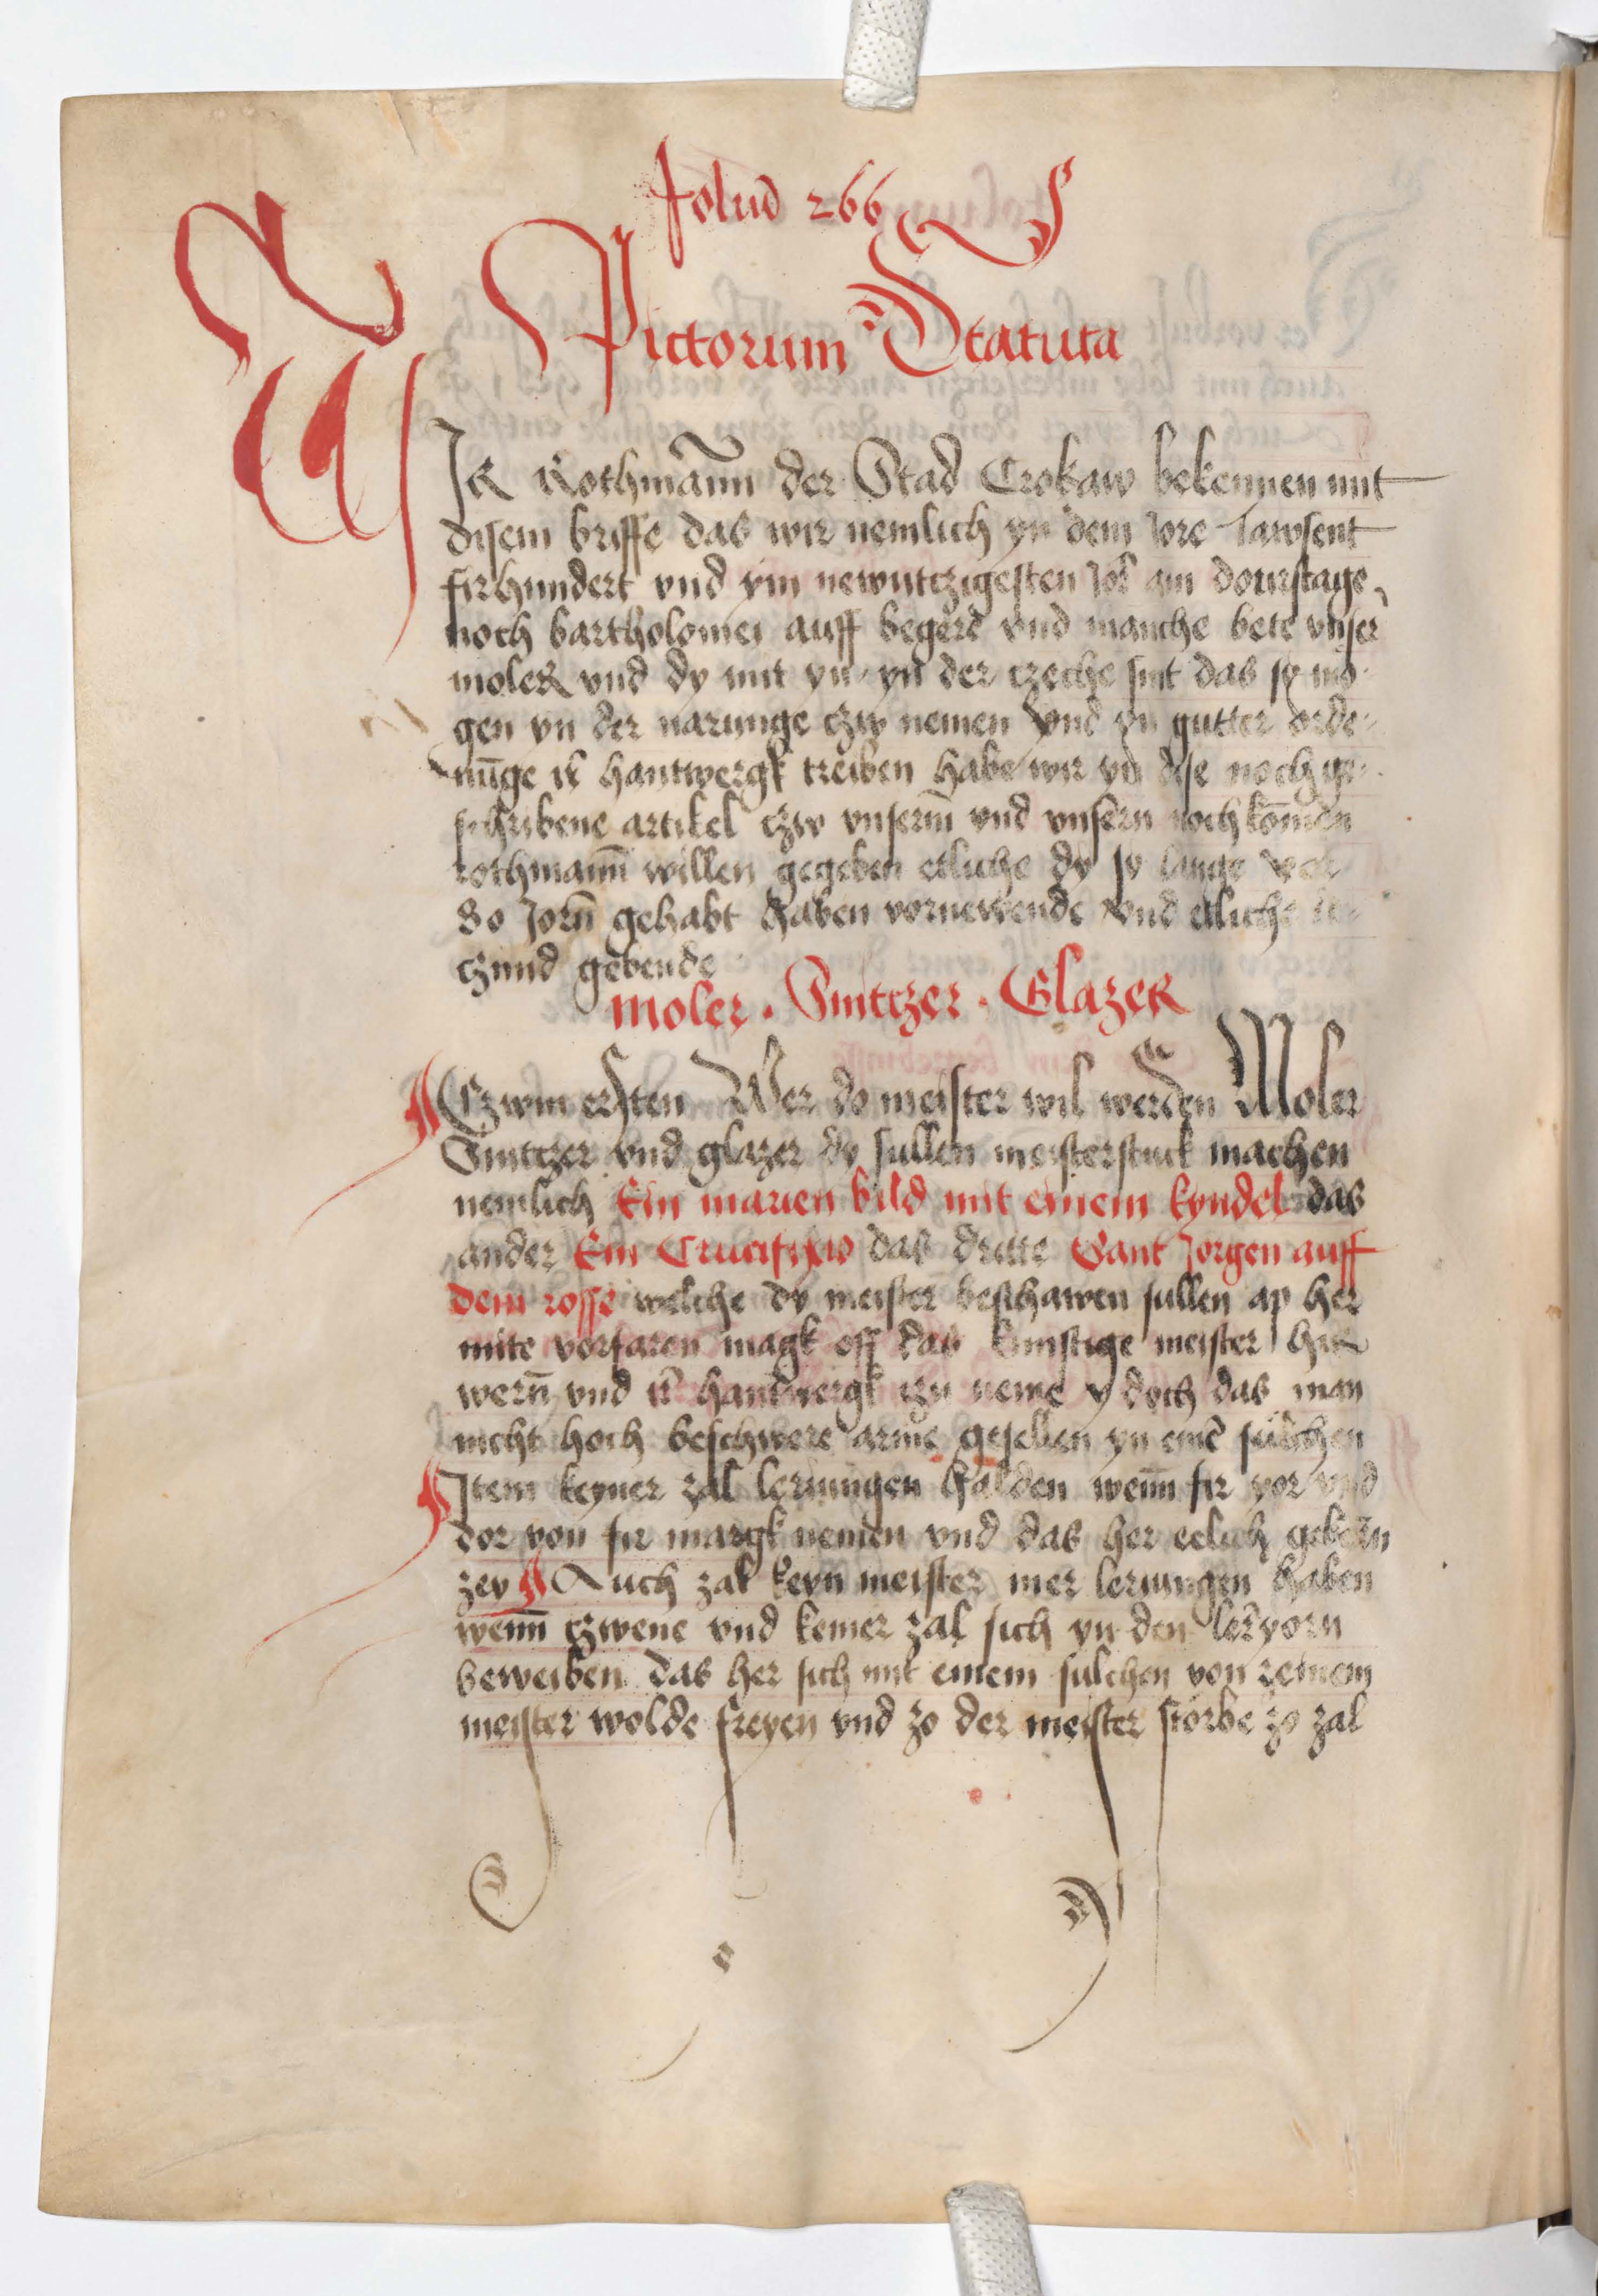 Foliū 266
Pictorum Statuta
WIR Rothmann der Stad Crokaw bekennen mit
disem briffe das wir nemlich yn dem Jore Tawsent
firhundert vnd ym newntczigesten Jor am donrstage
noch bartholomei auff begere vnd manche bete vnser
moler vnd dy mit yn yn der czeche sint das sy mo-
gen yn der narunge czw nemen vnd yn gutter orde-
nūge ir hantwergk treiben habe wir yn dise nochge-
schribene artikel czw vnserm vnd vnsern nochkomēden
rothmann willen gegeben etliche dy sy lange vor
80 Jorn gehabt haben vornewende vnd etliche
czund gebende
Moler . Snitczer . Glazer
Czwm ersten Wer do meister wil werden Moler
Snitczer vnd glazer dy sullen meisterstuck machen
nemlich Ein marien bild mit einem kyndel das
ander Ein Crucifixo das dritte Sant Jorgen auff
dem rosse welche dy meister beschawen sullen ap her
mite vorfaren magk off das kunstige meister hir
wern vnd ir handwergk czu neme y doch das man
nicht hoch beschwere arme gesellen yn eine sulchen
Item keyner zal leriungen halden wenn fir yor vnd
dor von fir margk nemen vnd das her eelich geborn
zey Auch zal keyn meister mer leriungen haben
wenn czwene vnd keiner zal sich yn den leryorn
beweiben das her sich mit einem sulchen von zeinem
meister wolde freyen vnd zo der meister storbe zo zal